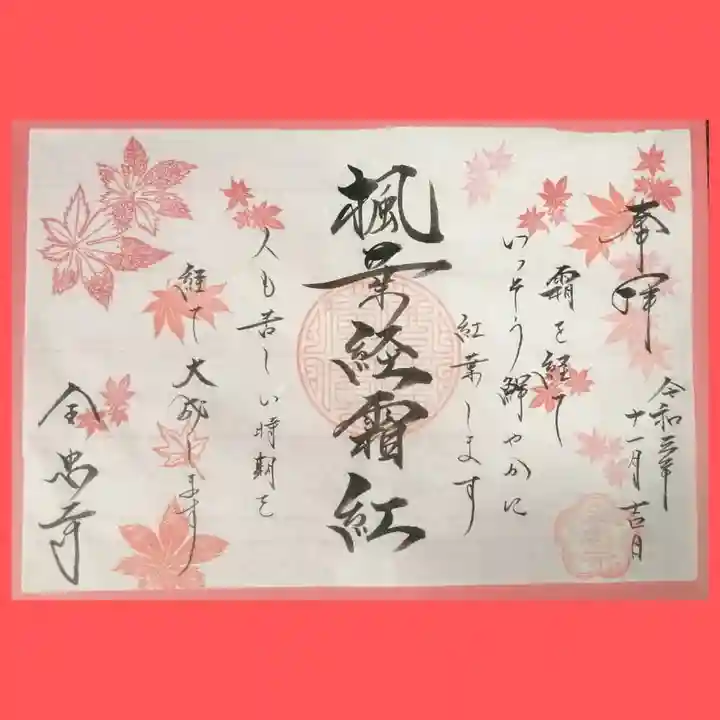 奉拝
令和三年
十一月吉日
霜を経て
いっそう鮮やかに
紅葉します
楓葉経霜紅
人も苦しい時期を
経て大成します
全忠寺